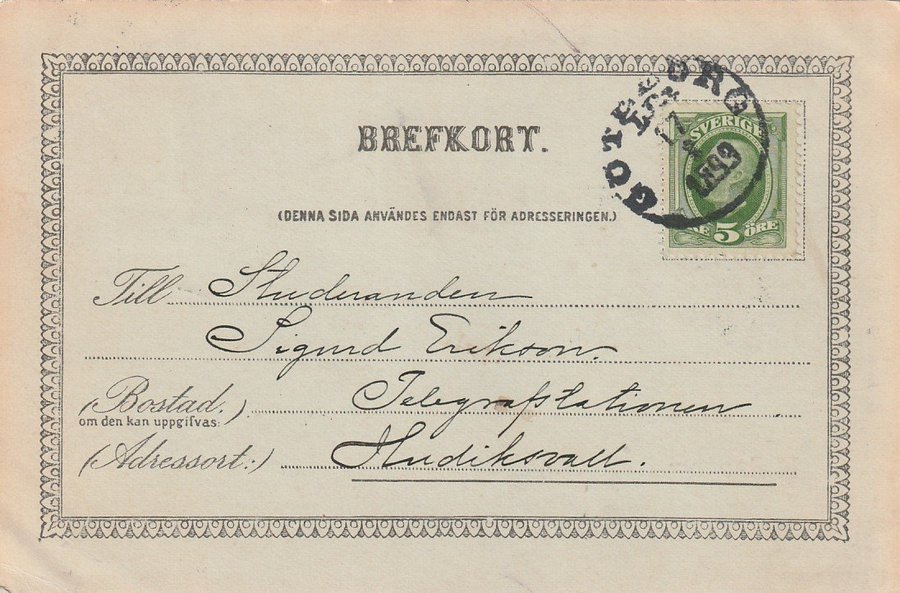 BREFKORT.
GÖTEBORG
17
1899
SVERIGE
5 ÖRE
(DENNA SIDA ANVÄNDES ENDAST FÖR ADRESSERINGEN.)
Till Studeranden
Sigurd Erikson.
(Bostad.) Telegrafstationen
om den kan uppgifvas:
(Adressort:) Hudiksvall.